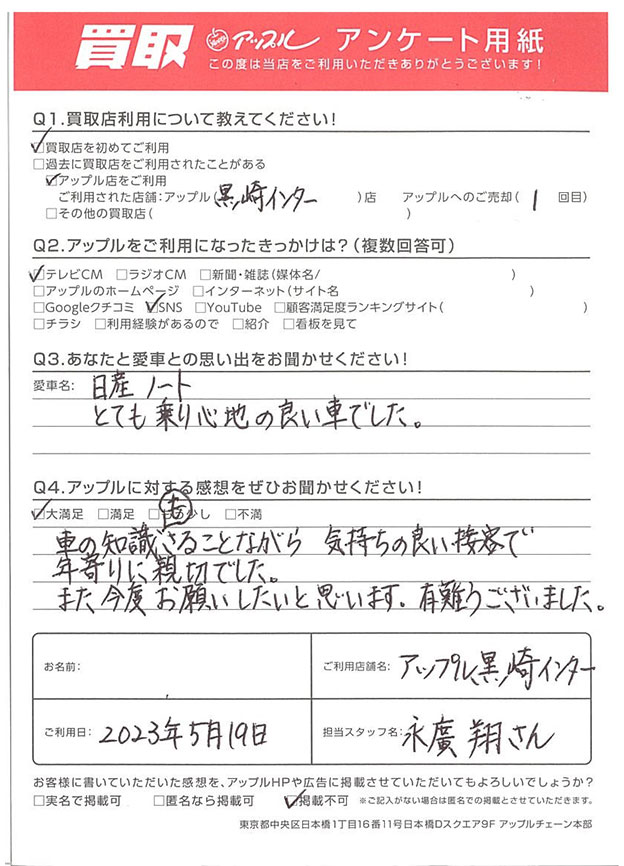 買取 アップル アンケート用紙
この度は当店をご利用いただきありがとうございます!
Q1.買取店利用について教えてください!
☑買取店を初めてご利用
□過去に買取店をご利用されたことがある
☑アップル店をご利用
ご利用された店舗:アップル(黒崎インター)店 アップルへのご売却(1回目)
□その他の買取店( )
Q2.アップルをご利用になったきっかけは?(複数回答可)
☑テレビCM □ラジオCM □新聞・雑誌(媒体名/ )
□アップルのホームページ □インターネット(サイト名 )
□Googleクチコミ ☑SNS □YouTube □顧客満足度ランキングサイト( )
□チラシ □利用経験があるので □紹介 □看板を見て
Q3.あなたと愛車との思い出をお聞かせください!
愛車名: 日産 ノート
とても乗り心地の良い車でした。
Q4.アップルに対する感想をぜひお聞かせください!
☑大満足 □満足 □もう少し □不満
車の知識もさることながら 気持ちの良い接客で
年寄りに親切でした。
また今度お願いしたいと思います。有難うございました。
お名前:
ご利用店舗名: アップル黒崎インター
ご利用日: 2023年5月19日
担当スタッフ名: 永廣翔さん
お客様に書いていただいた感想を、アップルHPや広告に掲載させていただいてもよろしいでしょうか?
□実名で掲載可 □匿名なら掲載可 ☑掲載不可 ※ご記入がない場合は匿名での掲載とさせていただきます。
東京都中央区日本橋1丁目16番11号日本橋Dスクエア9F アップルチェーン本部